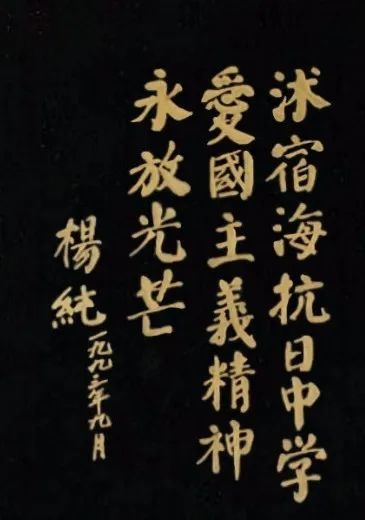 沭宿海抗日中学
愛國主義精神
永放光芒
楊純
一九九三年九月